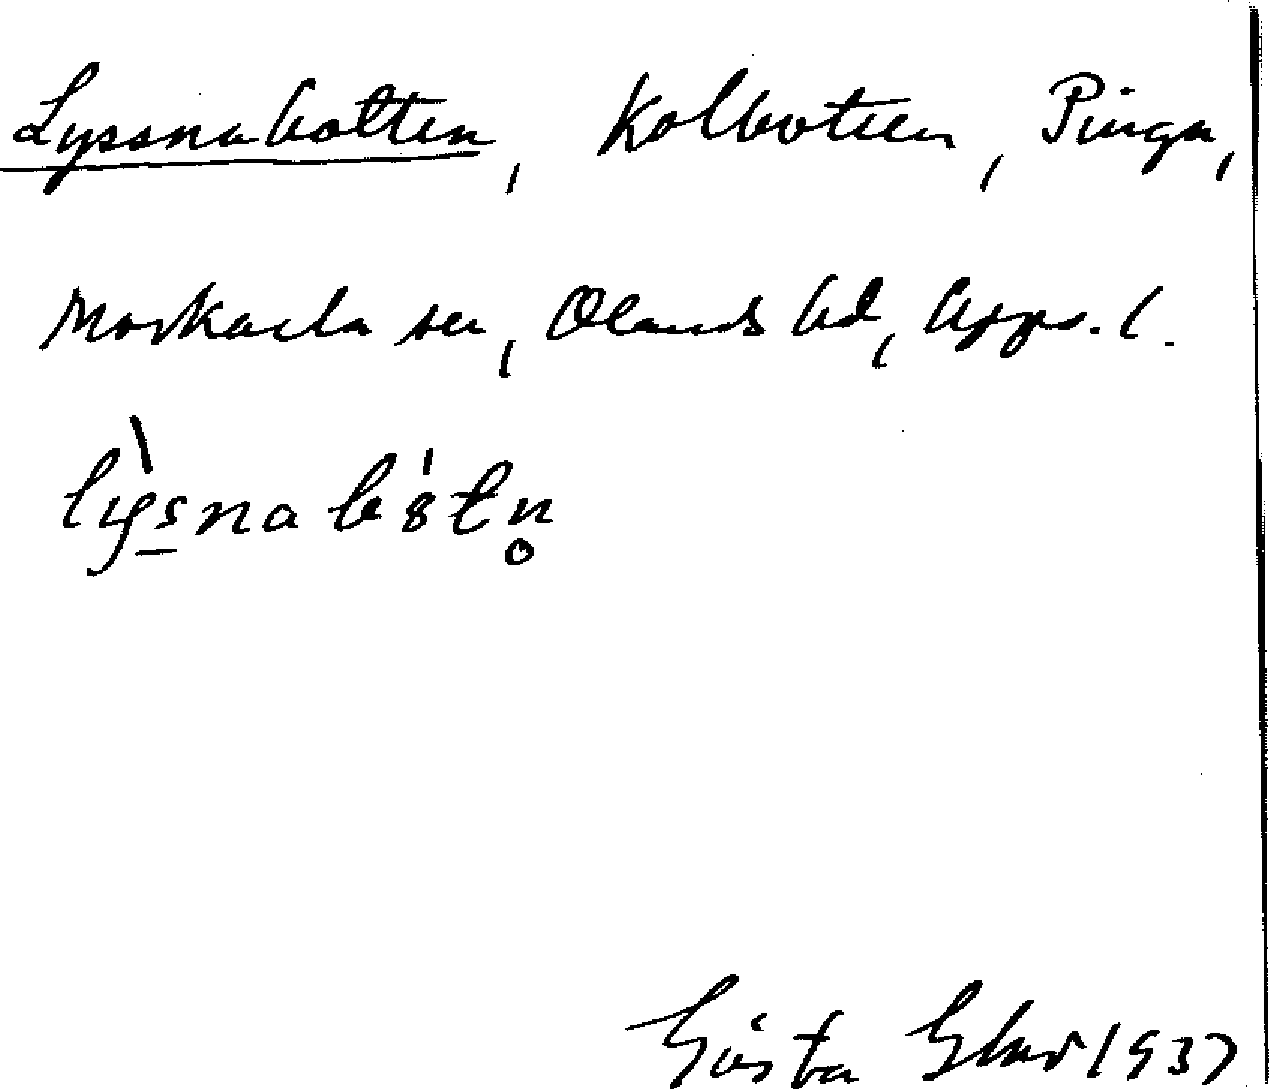 Lyssnabotten, Kolbotten, Pinga,
Morkarla sn, Olands hd, Upps. l.
lỳsnabótn̥
Gösta 1937